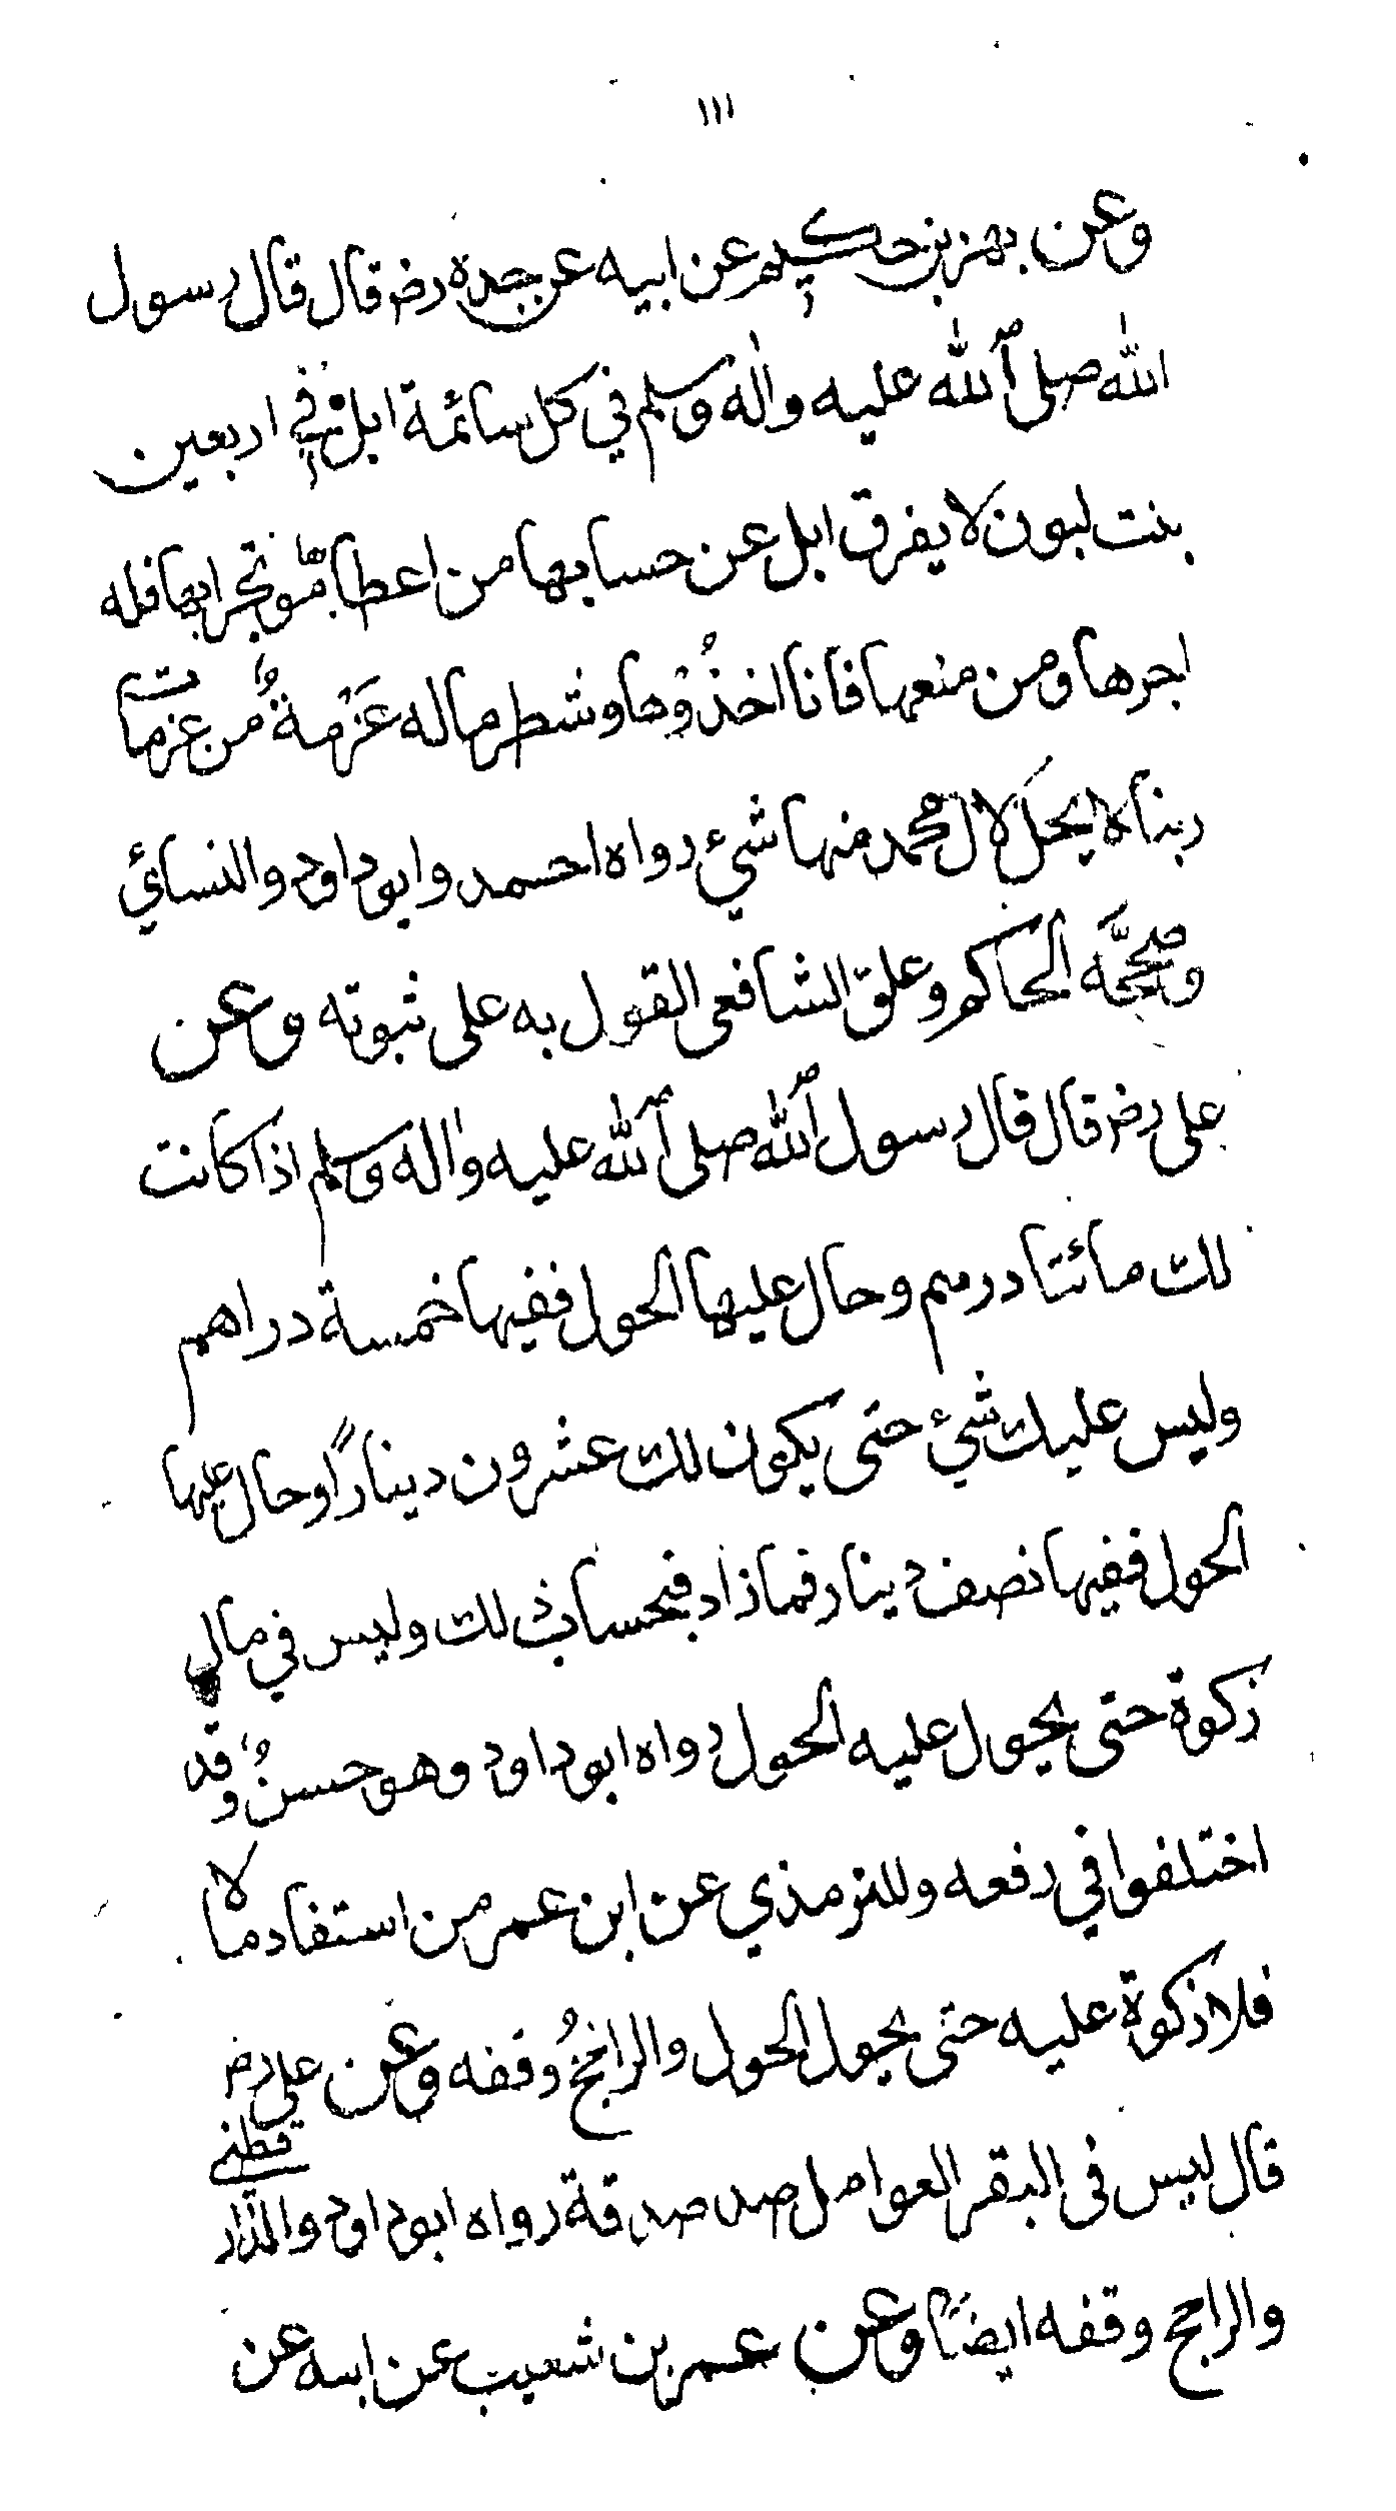 ١١١
وعن بهز بن حكيم عن ابيه عن جده رض قال قال رسول
الله صلى الله عليه واله وسلم في كل سائمة ابل في اربعين
بنت لبون لا يفرق ابل عن حسابها من اعطاها مؤتجرا بها فله
اجرها ومن منعها فانا اخذوها وشطر ماله عزمة من عزمات
ربنا لا يحل لال محمد منها شيء رواه احمد وابو داود والنسائي
وصححه الحاكم وعلق الشافعي القول به على ثبوته وعن
على رض قال قال رسول الله صلى الله عليه واله وسلم اذا كانت
لك مائتا درهم وحال عليها الحول ففيها خمسة دراهم
وليس عليك شيء حتى يكون لك عشرون دينارًا وحال عليها
الحول ففيها نصف دينار فما زاد فبحساب ذلك وليس في مال
زكوة حتى يحول عليه الحول رواه ابو داود وهو حسنٌ وقد
اختلفوا في رفعه وللترمذي عن ابن عمر من استفاد مالا
فلا زكوة عليه حتى يحول الحول والراجحُ وقفه وعن على رض
قال ليس فى البقر العوامل صد صدقة رواه ابو داود والدار قطني
والراجح وقفه ايضًا وعن عمر بن شعيب عن ابيه عن